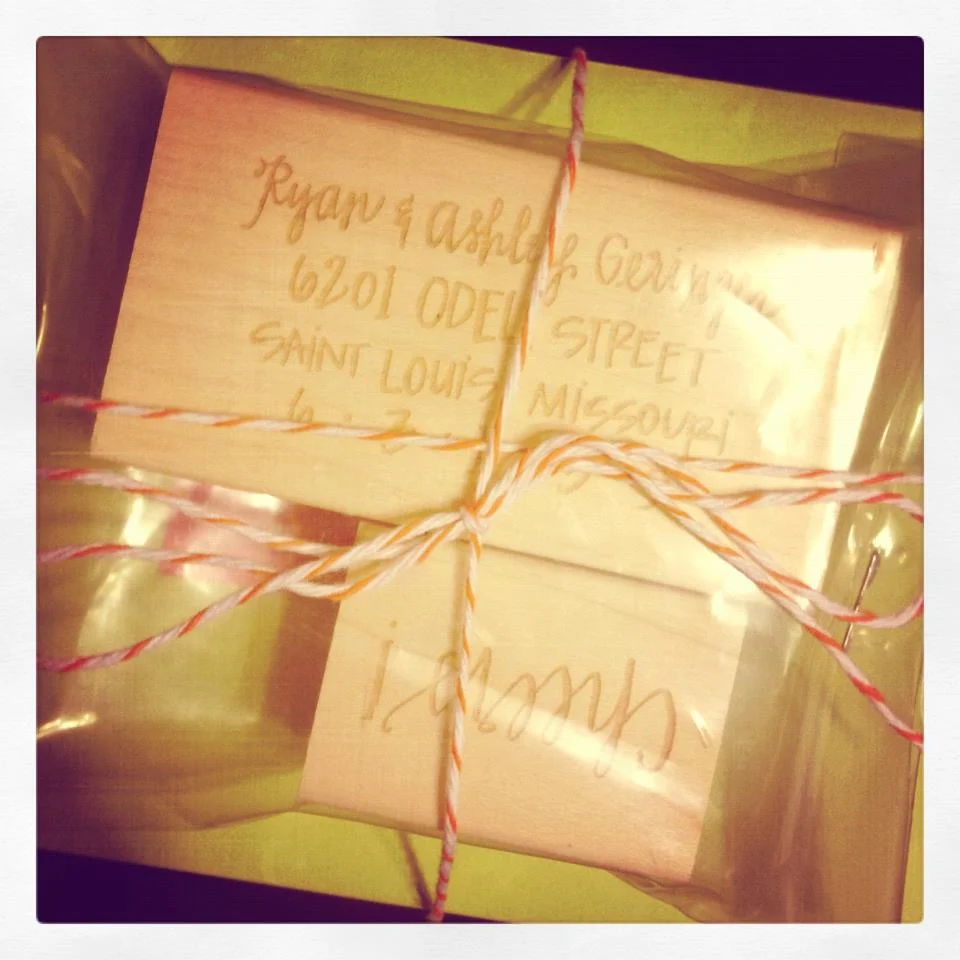 Ryan & Ashley
6201 ODELL STREET
SAINT LOUIS MISSOURI
cheers!